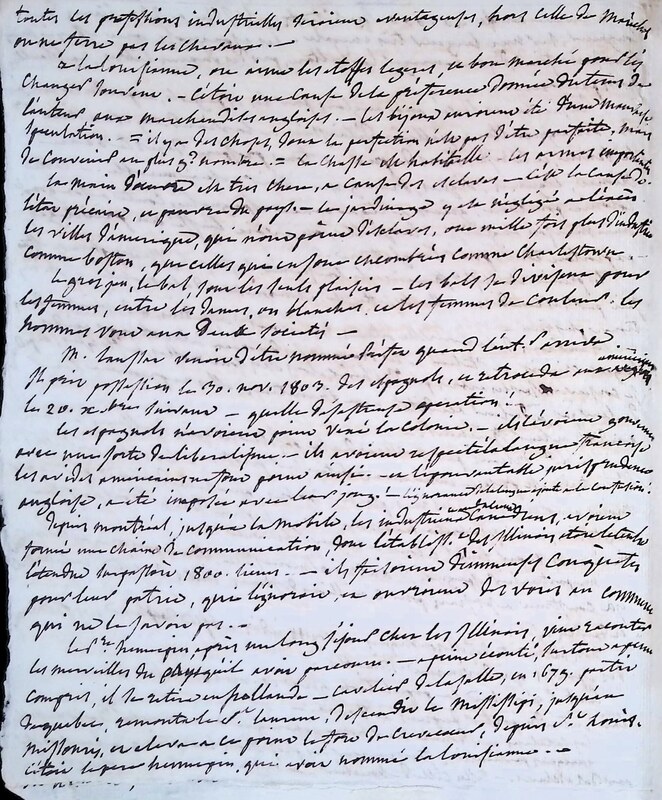 toutes les professions industrielles seroient avantageuses, hors celle de maréchal
on ne ferre pas les chevaux. —
a la louisianne, on aime les étoffes legeres, et bon marché pour les
changer souvent. — c'étoit une cause de la preference donnée du tems de
l'auteur aux marchandises angloises. — les bijoux auroient été d'une mauvaise
speculation. — il y a des choses, dont la perfection n'est pas d'être parfaite, mais
de convenir au plus gd nombre. = la chasse est habituelle les armes importantes
la main d'œuvre est tres chere, a cause des esclaves — c'est la cause de
l'état précaire, et pauvre du pays. — le jardinage y est négligé
les villes d'amerique, qui n'ont point d'esclaves, ont mille fois plus d'industrie
comme boston, que celles qui en sont encombrées comme Charlestown.
le gros jeu, le bal, sont les seuls plaisirs — les bals se divisent pour
les femmes, entre les dames, ou blanches, et les femmes de couleur. les
hommes vont aux deux societés —
M. laussat venoit d'être nommé Préfet quand l'aut. arriva.
Il prit possession le 30. nov. 1803. des espagnols, et retroceda aux americains
le 20. xbre suivant — quelle desastreuse operation!
les espagnols n'avoient point vexé la Colonie. — ils l'avoient gouvernée
avec une sorte de liberalisme. — ils avoient respecté la langue francoise
les avides americains ne font point ainsi. — et l'epouvantable jurisprudence
angloise, a été imposée avec leur joug. — l'ignorance de la langue ajoute a la confusion.
Depuis montreal, jusques a la mobile, les industrieux canadiens, avoient
formé une chaine de communication, dont l'établisst des Illinois étoit le centre
l'étendue surpassoit 1800. lieues. — ils faisoient d'immenses conquêtes
pour leur patrie, qui l'ignoroit, et ouvroient des voies au commerce
qui ne le savoit pas. —
Le Pere hennepin, après un long séjour chez les Illinois, vint raconter
les merveilles du pays qu'il avoit parcouru. — a peine écouté, surtout a peine
compris, il se retira en hollande — cavelier de la salle, en 1679. partit
de quebec, remonta le St laurent, descendit le Mississipi, jusqu'au
Missouri, et eleva a ce point le fort de Crevecœur, depuis St louis.
c'étoit le pere hennepin, qui avoit nommé la louisianne. —